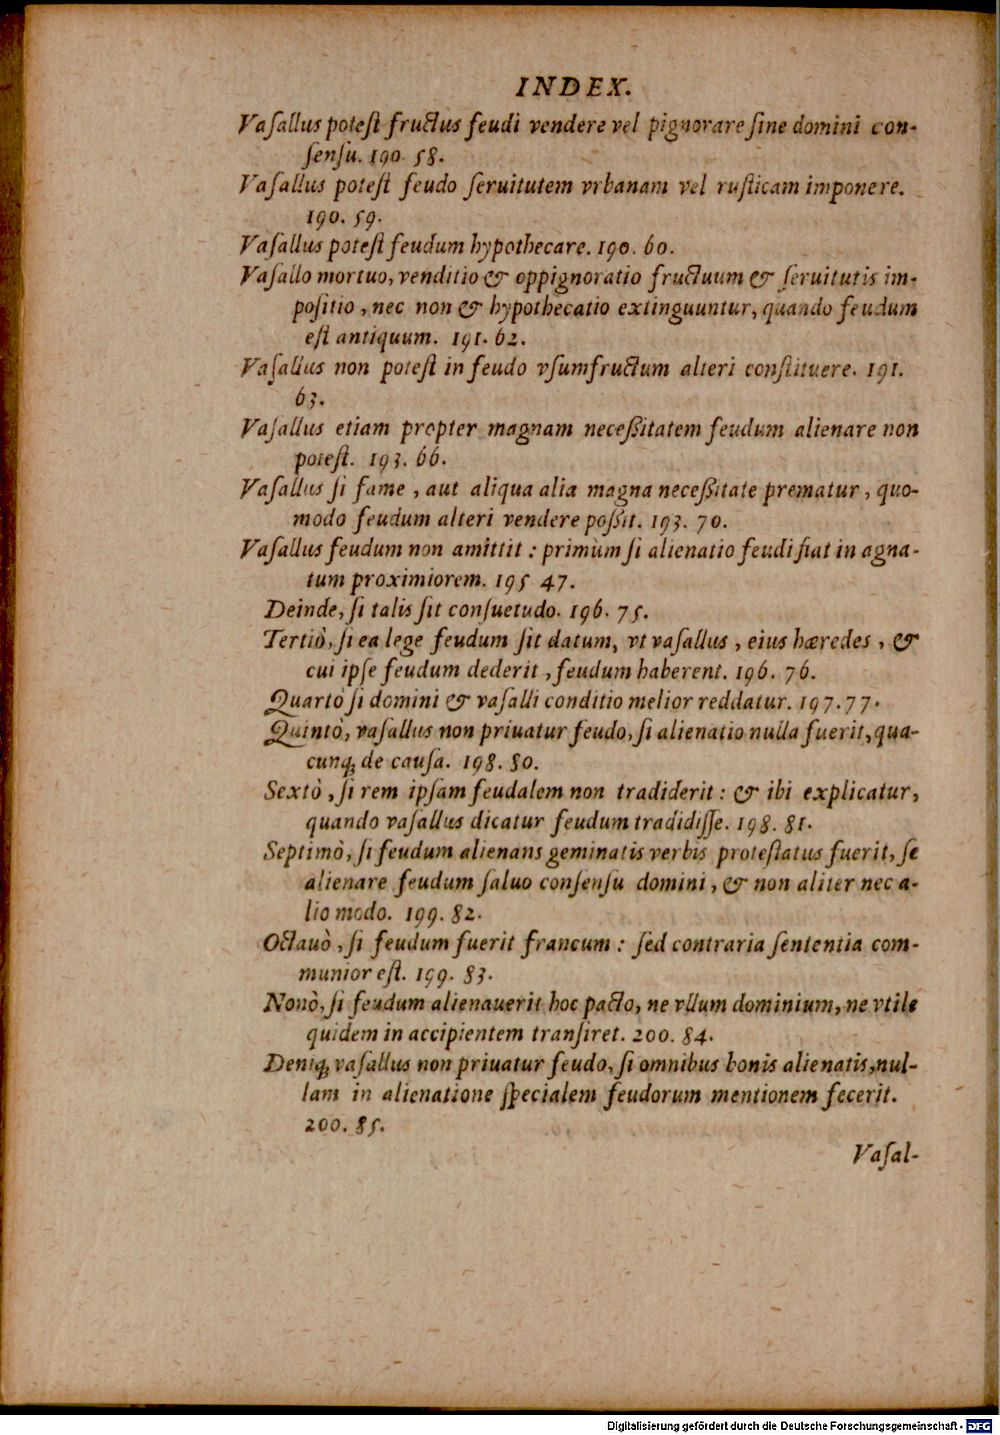 INDEX.
Vaſallus poteſt fructus feudi vendere vel pignorare ſine domini con-
ſenſu. 190. 58.
Vaſallus poteſt feudo ſeruitutem vrbanam vel ruſticam imponere.
190. 59.
Vaſallus poteſt feudum hypothecare. 190. 60.
Vaſallo mortuo, venditio & oppignoratio fructuum & ſeruitutis im-
poſitio, nec non & hypothecatio extinguuntur, quando feudum
eſt antiquum. 191. 62.
Vaſallus non poteſt in feudo vſumfructum alteri conſtituere. 191.
63.
Vaſallus etiam propter magnam neceßitatem feudum alienare non
poteſt. 193. 66.
Vaſallus ſi fame, aut aliqua alia magna neceßitate prematur, quo-
modo feudum alteri vendere poßit. 193. 70.
Vaſallus feudum non amittit: primùm ſi alienatio feudi fiat in agna-
tum proximiorem. 195 47.
Deinde, ſi talis ſit conſuetudo. 196. 75.
Tertiò, ſi ea lege feudum ſit datum, vt vaſallus, eius hæredes, &
cui ipſe feudum dederit, feudum haberent. 196. 76.
Quartò ſi domini & vaſalli conditio melior reddatur. 197. 77.
Quintò, vaſallus non priuatur feudo, ſi alienatio nulla fuerit, qua-
cunq; de cauſa. 198. 80.
Sextò, ſi rem ipſam feudalem non tradiderit: & ibi explicatur,
quando vaſallus dicatur feudum tradidiſſe. 198. 81.
Septimò, ſi feudum alienans geminatis verbis proteſtatus fuerit, ſe
alienare feudum ſaluo conſenſu domini, & non aliter nec a-
lio modo. 199. 82.
Octauò, ſi feudum fuerit francum: ſed contraria ſententia com-
munior eſt. 199. 83.
Nonò, ſi feudum alienauerit hoc pacto, ne vllum dominium, ne vtile
quidem in accipientem tranſiret. 200. 84.
Deniq; vaſallus non priuatur feudo, ſi omnibus bonis alienatis, nul-
lam in alienatione ſpecialem feudorum mentionem fecerit.
200. 85.
Vaſal-
Digitalisierung gefördert durch die Deutsche Forschungsgemeinschaft - DFG